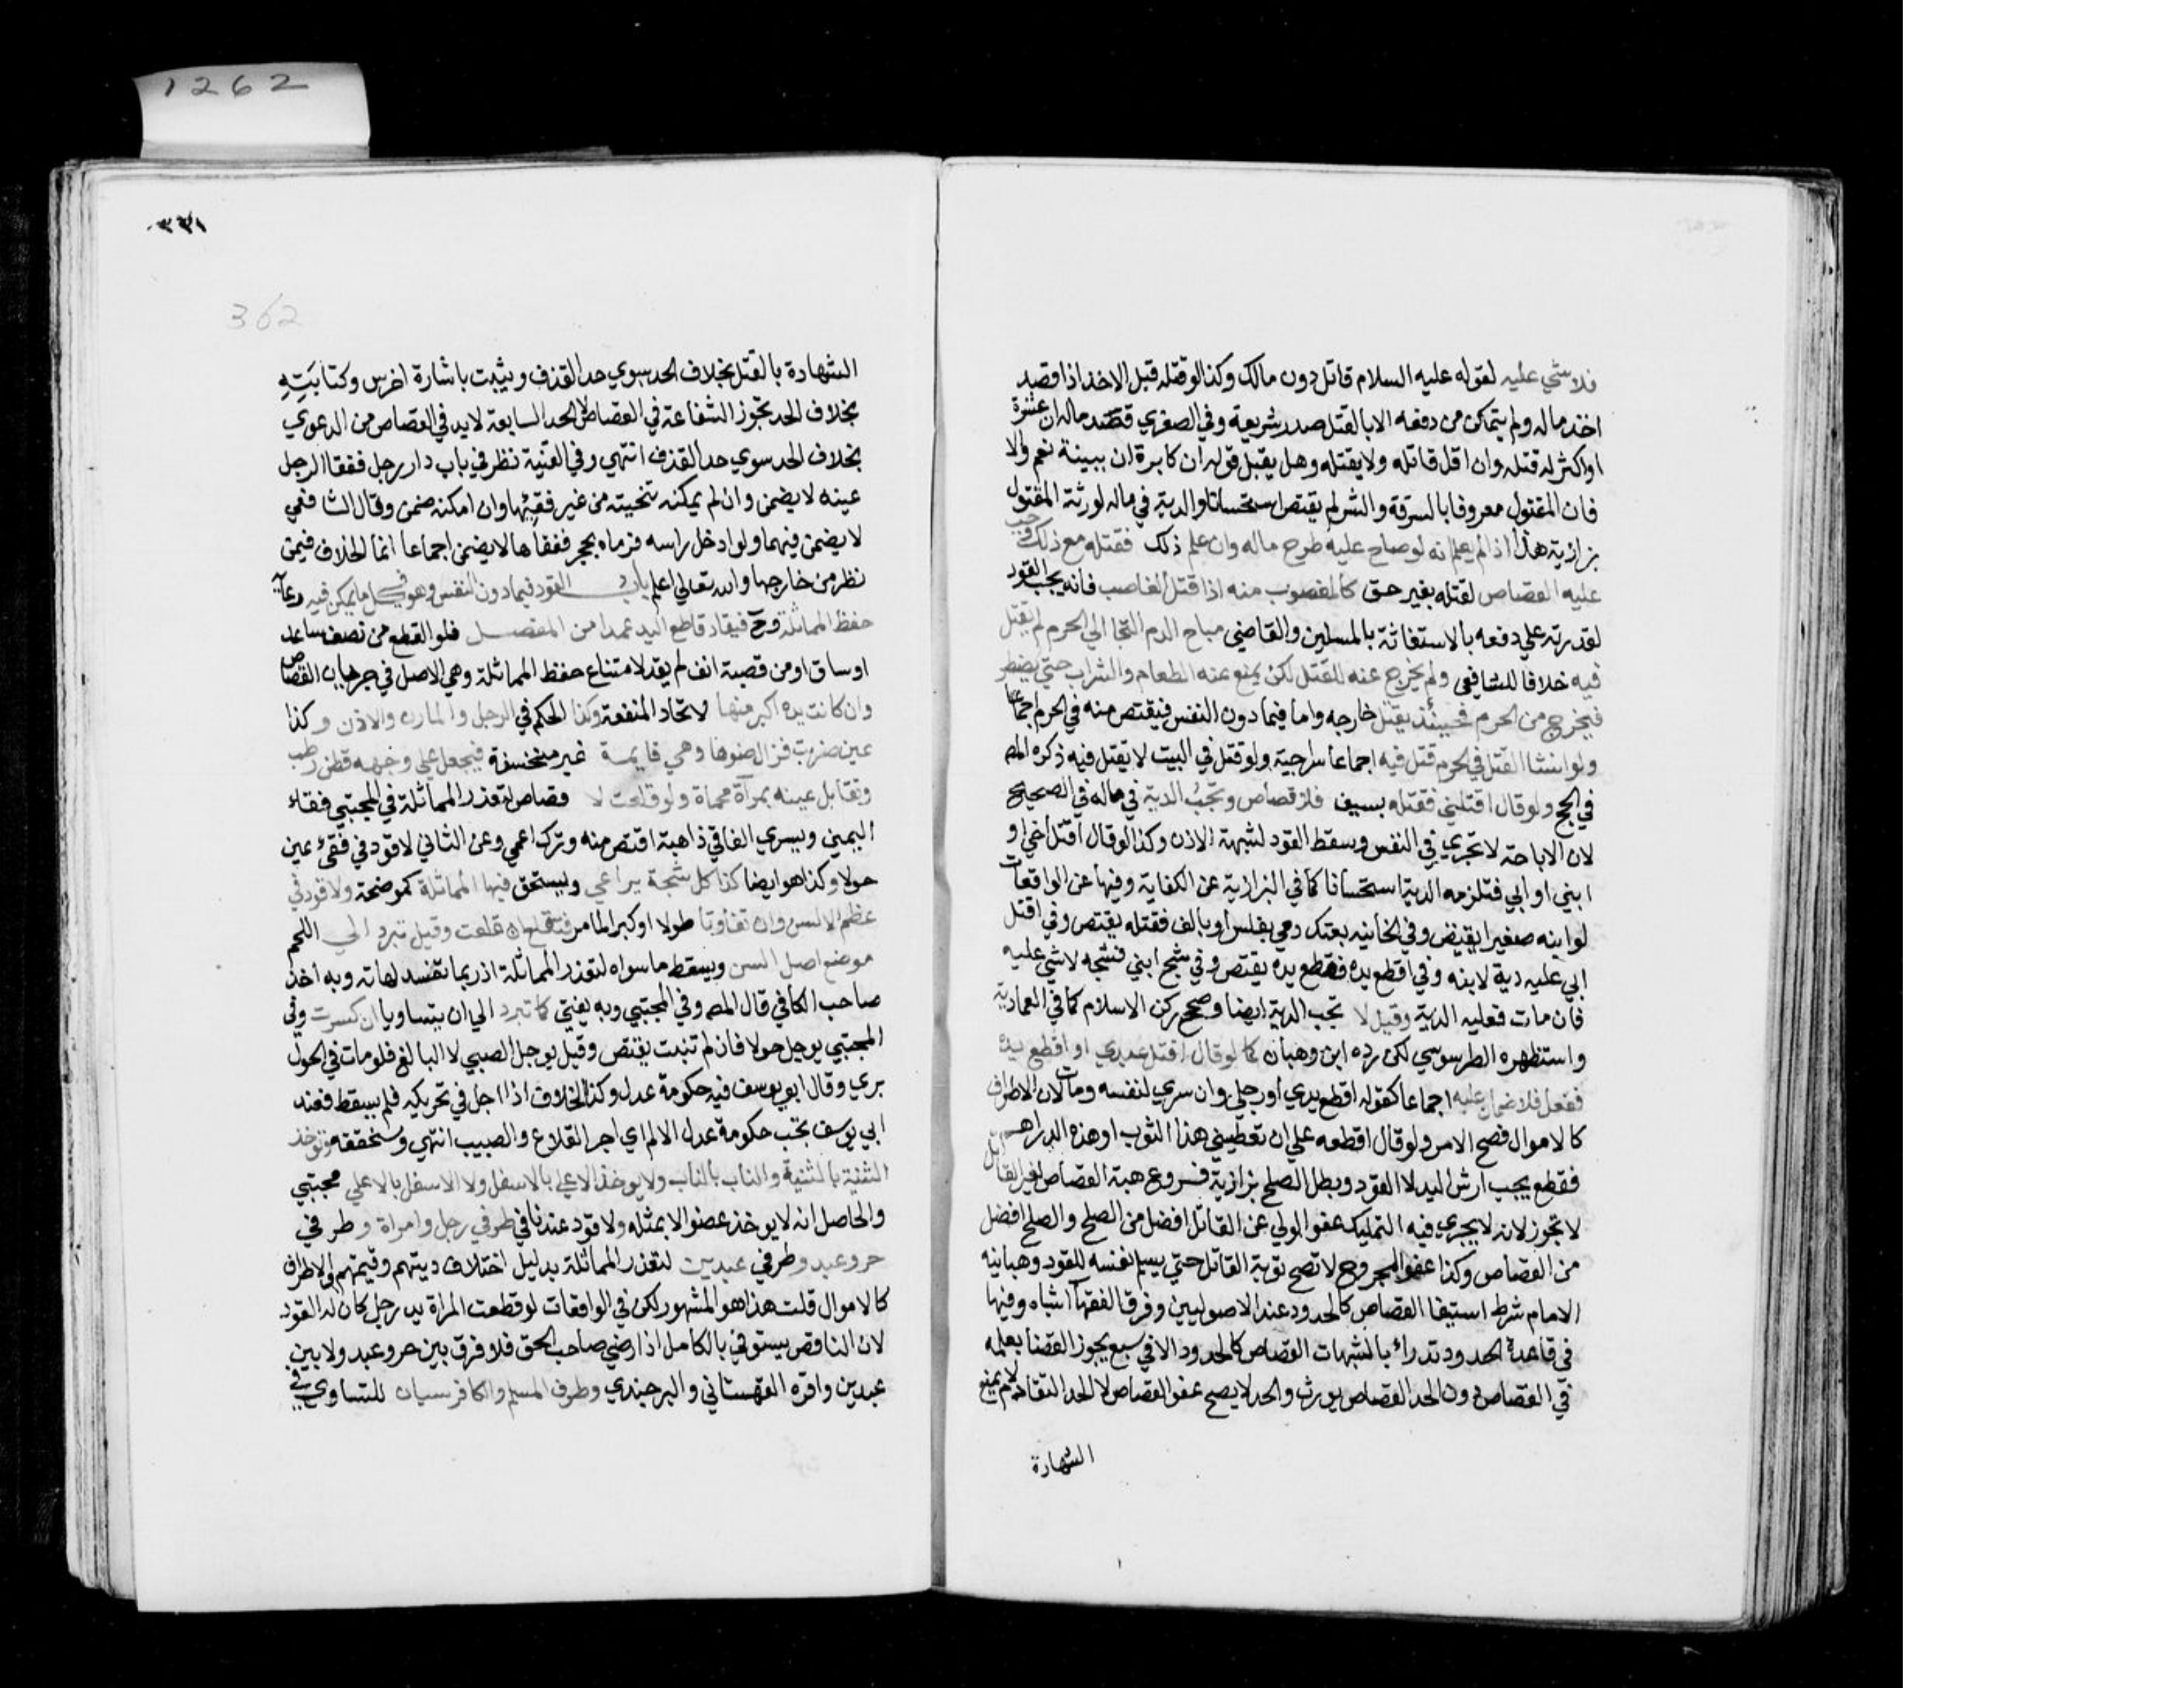 فلا شي عليه لقوله عليه السلام قاتل دون مالك وكذا لو قتله قبل الاخذ اذا قصد
اخذ ماله ولم يتمكن من دفعه الا بالقتل صدر شريعة وفي الصغري قصد ماله ان عشرة
او اكثر له قتله وان اقل قاتله ولا يقتله وهل يقبل قوله ان كابره ان ببينة نعم والا
فان المقتول معروفا بالسرقة والشر لم يقتص استحسانا والدية في ماله لورثة المقتول
بزازية هذا اذا لم يعلم انه لو صاح عليه طرح ماله وان علم ذلك فقتله مع ذلك وجب
عليه القصاص لقتله بغير حق كالمغصوب منه اذا قتل الغاصب فانه يجب القود
لقدرته علي دفعه بالاستغاثة بالمسلمين والقاضي مباح الدم التجا الي الحرم لم يقتل
فيه خلافا للشافعي ولم يخرج عنه للقتل لكن يمنع عنه الطعام والشراب حتي يضطر
فيخرج من الحرم فحينئذ يقتل خارجه واما فيما دون النفس فيقتص منه في الحرم اجماعا
ولو انشا القتل في الحرم قتل فيه اجماعا سراجية ولو قتل في البيت لا يقتل فيه ذكره المص
في الحج ولو قال اقتلني فقتله بسيف فلا قصاص وتجب الدية في ماله في الصحيح
لان الاباحة لا تجري في النفس وسقط القود لشبهة الاذن وكذا لو قال اقتل اخي او
ابني او ابي فتلزمه الدية استحسانا كما في البزازية عن الكفاية وفيها عن الواقعات
لو ابنه صغيرا يقتص وفي الخانيه بعتك دمي بفلس او بالف فقتله يقتص وفي اقتل
ابي عليه دية لابنه وفي اقطع يده فقطع يده يقتص وفي شج ابني فشجه لا شي عليه
فان مات فعليه الدية وقيل لا تجب الدية ايضا وصححه ركن الاسلام كما في العمادية
واستظهره الطرسوسي لكن رده ابن وهبان كما لو قال اقتل عبدي او اقطع يده
ففعل فلا ضمان عليه اجماعا كقوله اقطع يدي او رجلي وان سري لنفسه ومات لان الاطراف
كالاموال فصح الامر ولو قال اقطعه علي ان تعطيني هذا الثوب او هذه الدراهم
فقطع يجب ارش اليد لا القود وبطل الصلح بزازية فروع هبة القصاص لغير القاتل
لا تجوز لانه لا يجري فيه التمليك عفو الولي عن القاتل افضل من الصلح والصلح افضل
من القصاص وكذا عفو المجروح لا تصح توبة القاتل حتي يسلم نفسه للقود وهبانيه
الامام شرط استيفا القصاص كالحدود عند الاصوليين وفرق الفقهآ اشباه وفيها
في قاعدة الحدود تدراء بالشبهات القصاص كالحدود الا في سبع يجوز القضا بعلمه
في القصاص دون الحد القصاص يورث والحد لا يصح عفو القصاص لا الحد التقادم لا يمنع
الشهادة
٣٣١
362
1262
الشهادة بالقتل بخلاف الحد سوي حد القذف ويثبت باشارة اخرس وكتابته
بخلاف الحد تجوز الشفاعة في القصاص لا الحد السابعة لابد في القصاص من الدعوي
بخلاف الحد سوي حد القذف انتهي وفي القنية نظر في باب دار رجل ففقا الرجل
عينه لا يضمن وان لم يمكنه تنحيته من غير فقئها وان امكنه ضمن وقال الشافعي
لا يضمن فيهما ولو ادخل راسه فرماه بحجر ففقاها لا يضمن اجماعا انما الخلاف فيمن
نظر من خارجها والله تعالي اعلم باب القود فيما دون النفس وهو في كل ما يمكن فيه رعاية
حفظ المماثلة وح فيقاد قاطع اليد عمدا من المفصل فلو القطع من نصف ساعد
او ساق او من قصبة انف لم يقد لامتناع حفظ المماثلة وهي الاصل في جريان القصاص
وان كانت يده اكبر منها لاتحاد المنفعة وكذا الحكم في الرجل والمارن والاذن وكذا
عين ضربت فزال ضوها وهي قايمة غير منخسفة فيجعل علي وجهه قطن رطب
وتقابل عينه بمرآة محماة ولو قلعت لا قصاص لتعذر المماثلة في المجتبي فقاء
اليمين ويسري الفاقي ذاهبة اقتص منه وترك اعمي وعن الثاني لا قود في فقئ عين
حولا وكذا هو ايضا كذا كل شجة يراعي ويستحق فيها المماثلة كموضحة ولا قود في
عظم الا السن وان تفاوتا طولا او كبرا لما مر فتقلع ان قلعت وقيل تبرد الي اللحم
موضع اصل السن ويسقط ما سواه لتعذر المماثلة اذ ربما تفسد لهاته وبه اخذ
صاحب الكافي قال المص وفي المجتبي وبه يفتي كما تبرد الي ان يتساويا ان كسرت وفي
المجتبي يوجل حولا فان لم تنبت يقتص وقيل يوجل الصبي لا البالغ فلو مات في الحول
بري وقال ابو يوسف فيه حكومة عدل وكذا الخلاف اذا اجل في تحريكه فلم يسقط فعند
ابي يوسف تجب حكومة عدل الالم اي اجر القلاع والطبيب انتهي وسنحققه وتوخذ
الثنية بالثنية والناب بالناب ولا يوخذ الاعلي بالاسفل ولا الاسفل بالاعلي مجتبي
والحاصل انه لا يوخذ عضو الا بمثله ولا قود عندنا في طرفي رجل وامراة وطرفي
حر وعبد وطرفي عبدين لتعذر المماثلة بدليل اختلاف ديتهم وقيمتهم والاطراف
كالاموال قلت هذا هو المشهور لكن في الواقعات لو قطعت المراة يد رجل كان له القود
لان الناقص يستوفي بالكامل اذا رضي صاحب الحق فلا فرق بين حر وعبد ولا بين
عبدين واقره القهستاني والبرجندي وطرف المسلم والكافر سيان للتساوي في